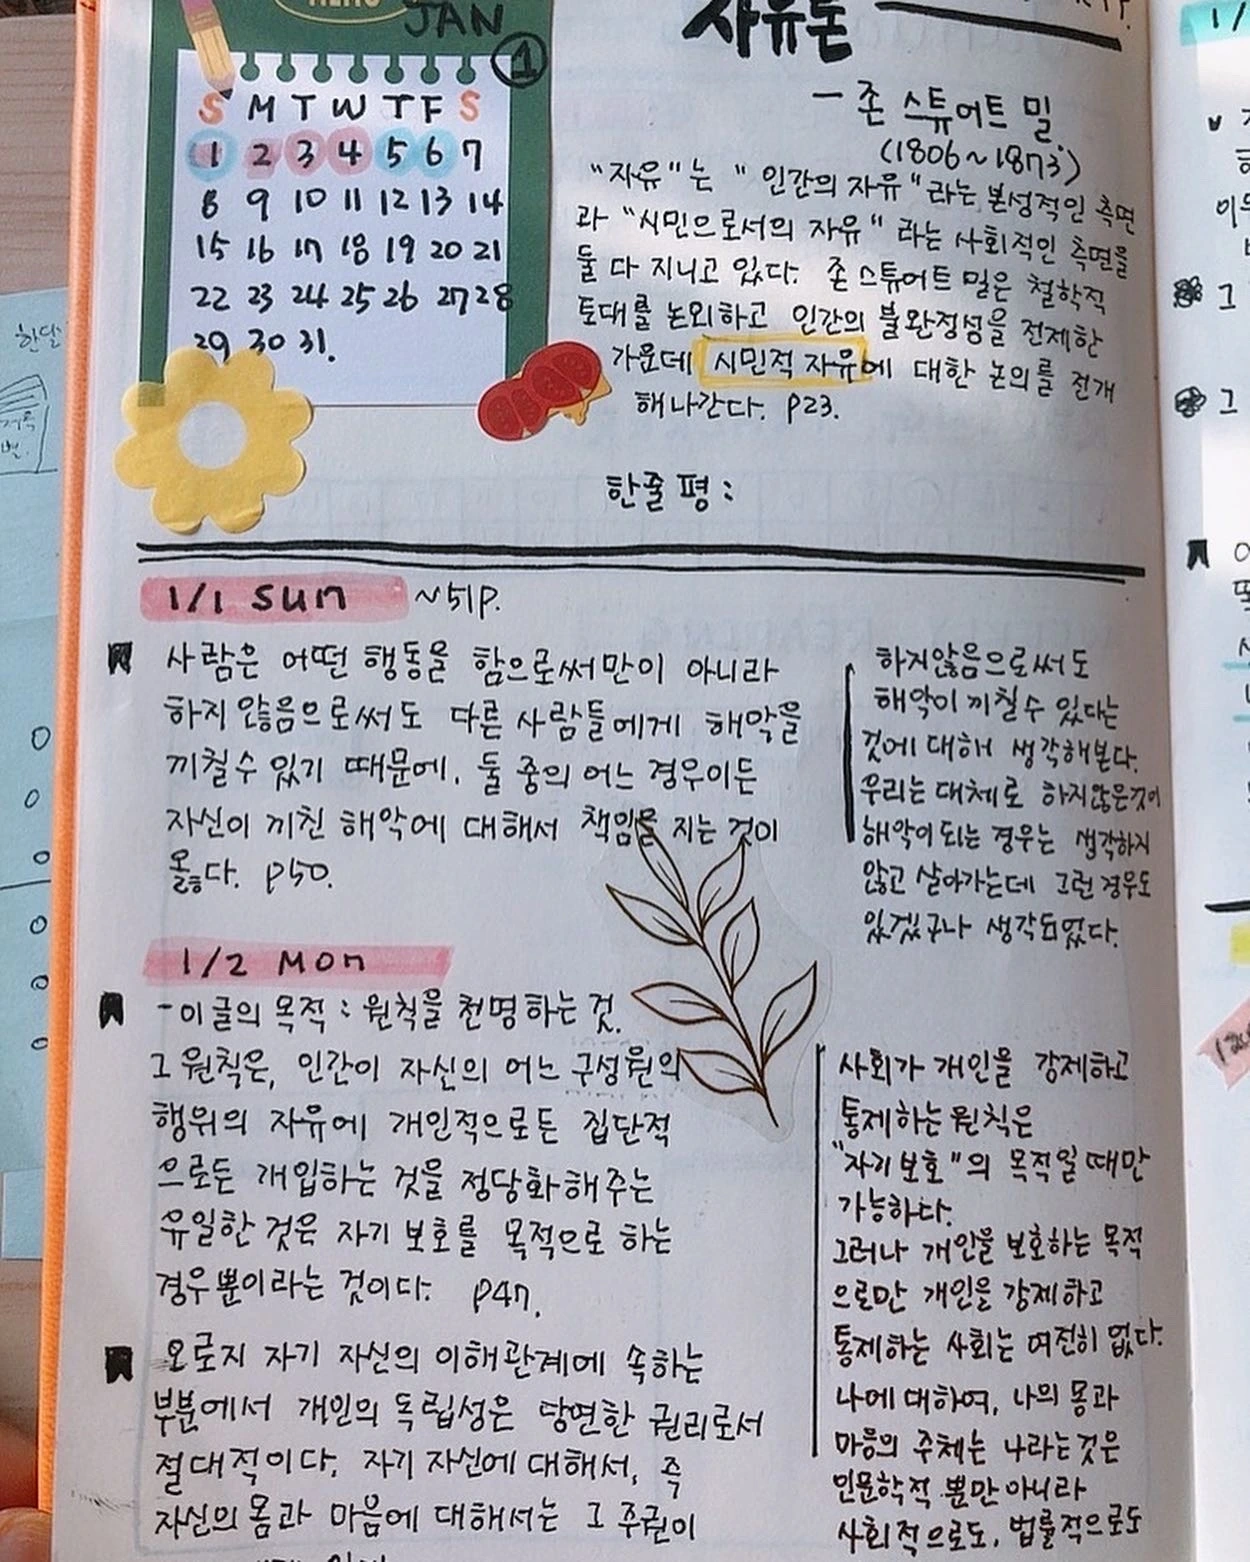 JAN
1
S M T W T F S
1 2 3 4 5 6 7
8 9 10 11 12 13 14
15 16 17 18 19 20 21
22 23 24 25 26 27 28
29 30 31.
자유론
- 존 스튜어트 밀.
(1806~1873)
"자유"는 "인간의 자유"라는 본성적인 측면
과 "시민으로서의 자유"라는 사회적인 측면을
둘 다 지니고 있다. 존 스튜어트 밀은 철학적
토대를 논외하고 인간의 불완정성을 전제한
가운데 시민적 자유에 대한 논의를 전개
해나간다. P23.
한줄평 :
1/1 Sun ~51P.
사람은 어떤 행동을 함으로써만이 아니라
하지 않음으로써도 다른 사람들에게 해악을
끼칠수 있기 때문에, 둘 중의 어느 경우이든
자신이 끼친 해악에 대해서 책임을 지는 것이
옳다. P50.
하지않음으로써도
해악이 끼칠수 있다는
것에 대해 생각해본다.
우리는 대체로 하지않은것이
해악이 되는 경우는 생각하지
않고 살아가는데 그런 경우도
있겠구나 생각되었다.
1/2 Mon
- 이 글의 목적 : 원칙을 천명하는 것.
그 원칙은, 인간이 자신의 어느 구성원의
행위의 자유에 개인적으로든 집단적
으로든 개입하는 것을 정당화해주는
유일한 것은 자기 보호를 목적으로 하는
경우뿐이라는 것이다. P47.
오로지 자기 자신의 이해관계에 속하는
부분에서 개인의 독립성은 당연한 권리로서
절대적이다. 자기 자신에 대해서, 즉
자신의 몸과 마음에 대해서는 그 주권이
사회가 개인을 강제하고
통제하는 원칙은
"자기보호"의 목적일 때만
가능하다.
그러나 개인을 보호하는 목적
으로만 개인을 강제하고
통제하는 사회는 여전히 없다.
나에 대하여, 나의 몸과
마음의 주체는 나라는 것은
인문학적 뿐만 아니라
사회적으로도, 법률적으로도
한달